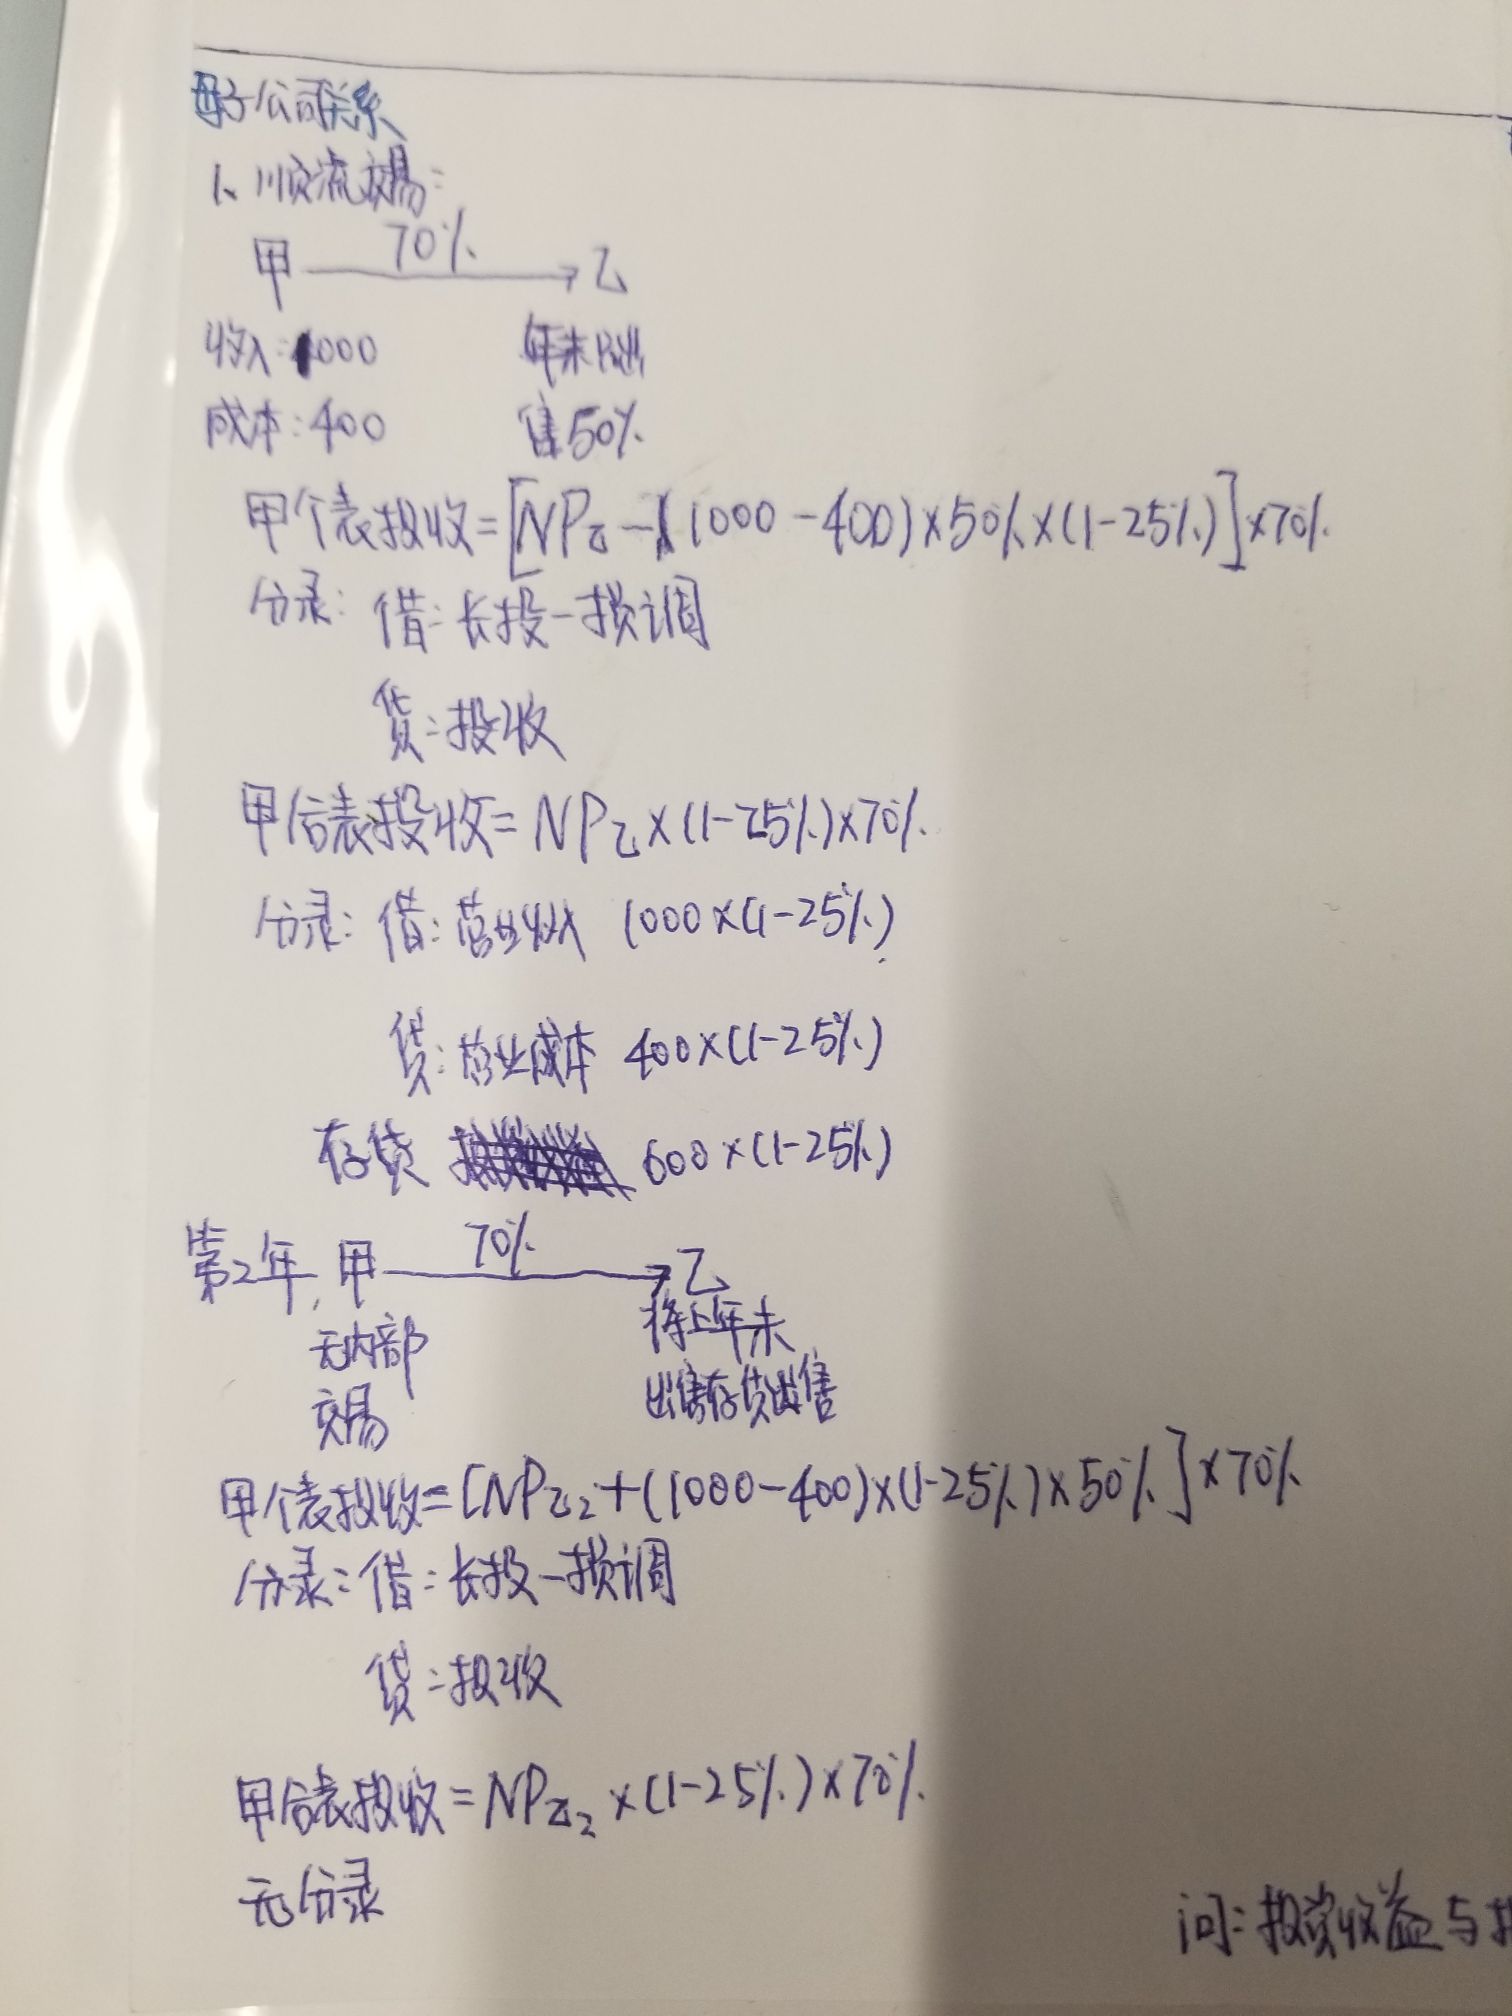 母子公司关系
1、顺流交易：
甲 70% → 乙
收入：1000 年末已出
成本：400 售50%
甲个表投收=[NP乙-(1000-400)×50%×(1-25%)]×70%
分录：借：长投-损调
贷：投收
甲合表投收=NP乙×(1-25%)×70%
分录：借：营业收入 1000×(1-25%)
贷：营业成本 400×(1-25%)
存货 600×(1-25%)
第2年，甲 70% → 乙
无内部 将上年未
交易 出售存货出售
甲个表投收=[NP乙2+(1000-400)×(1-25%)×50%]×70%
分录：借：长投-损调
贷：投收
甲合表投收=NP乙2×(1-25%)×70%
无分录
问：投资收益与